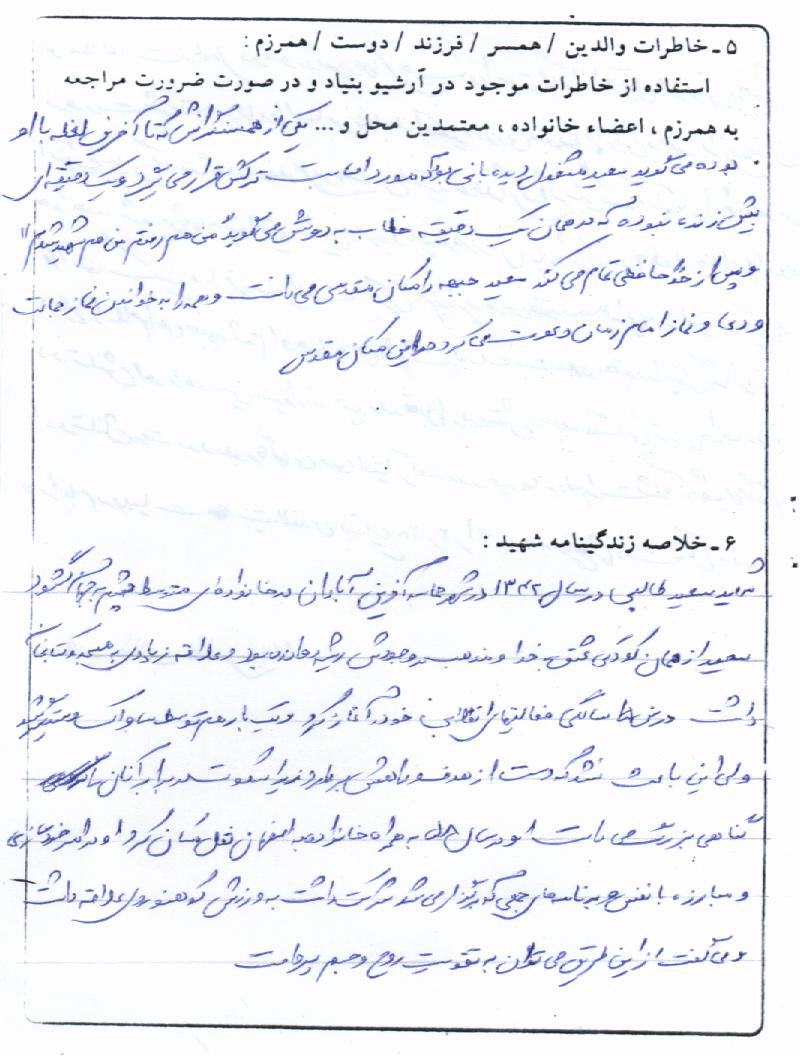 ۵ ـ خاطرات والدین / همسر / فرزند / دوست / همرزم :
استفاده از خاطرات موجود در آرشیو بنیاد و در صورت ضرورت مراجعه
به همرزم ، اعضاء خانواده ، معتمدین محل و ... یکی از همسنگرانش که تا آخرین لحظه با او
بوده می‌گوید سعید مشغول دیده‌بانی بود که مورد اصابت ترکش قرار می‌گیرد و یک دقیقه‌ای
بیش زنده نبوده که در همان یک دقیقه خطاب به دوستش می‌گوید من هم رفتم من هم شهید شدم"
و پس از خداحافظی تمام می‌کند سعید جبهه را مکان مقدسی می‌دانست و همه را به خواندن نماز جماعت
و دعا و نماز امام زمان دعوت می‌کرد در این مکان مقدس
۶ ـ خلاصه زندگینامه شهید :
شهید سعید طالبی در سال ۱۳۴۲ در شهر حماسه آفرین آبادان در خانواده‌ای متوسط چشم به جهان گشود
سعید از همان کودکی عشق به خدا و مذهب در وجودش ریشه دوانده بود و علاقه زیادی به مسجد و کتابخانه
داشت در سن ۱۵ سالگی فعالیتهای انقلابی خود را آغاز کرد و یک بار هم توسط ساواک دستگیر شد
ولی این باعث نشد که دست از هدف و راهش بردارد زیرا سکوت در برابر آنان را
گناهی بزرگ می‌دانست او در سال ۵۸ به همراه خانواده به اصفهان نقل مکان کرد او در امر خودسازی
و مبارزه با نفس و برنامه‌های جمعی که برگزار می‌شد شرکت داشت به ورزش کوهنوردی علاقه داشت
و می‌گفت از این طریق می‌توان به تقویت روح و جسم پرداخت